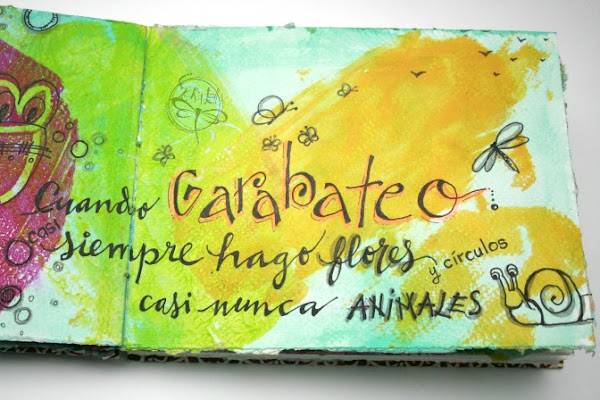 Cuando Garabateo...
casi siempre hago flores y círculos
casi nunca ANIMALES